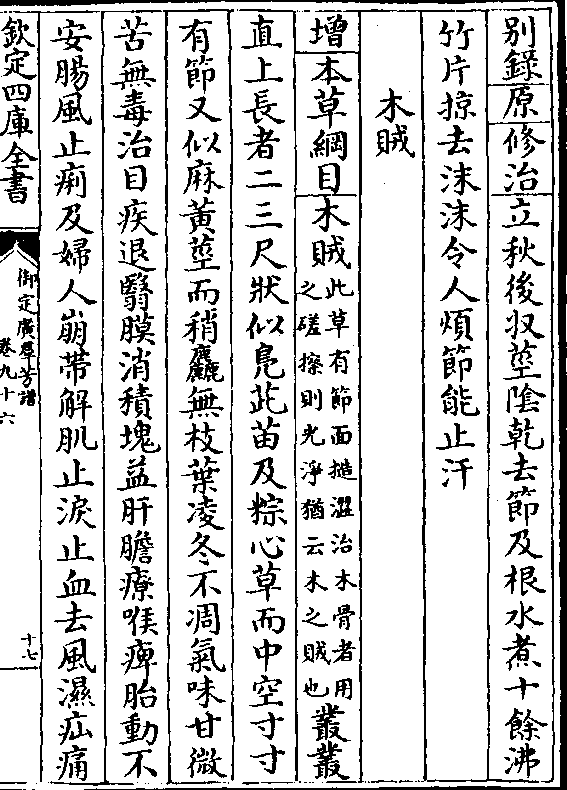 別錄原修治立秋後收莖陰乾去節及根水煮十餘沸
竹片掠去沫沫令人煩節能止汗
木賊
增本草綱目木賊此草有節面糙澀治木骨者用之磋擦則光淨猶云木之賊也叢叢
直上長者二三尺狀似鳧茈苗及粽心草而中空寸寸
有節又似麻黃莖而稍麤無枝葉凌冬不凋氣味甘微
苦無毒治目疾退翳膜消積塊益肝膽療喉痺胎動不
安腸風止痢及婦人崩帶解肌止淚止血去風濕疝痛
欽定四庫全書
御定廣羣芳譜
卷九十六
十七